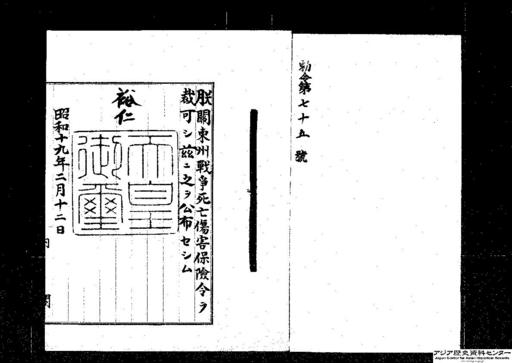 勅令第七十五號
朕關東州戰爭死亡傷害保險令ヲ
裁可シ茲ニ之ヲ公布セシム
裕仁
天皇御璽
昭和十九年二月十二日
内閣
アジア歴史資料センター
Japan Center for Asian Historical Records